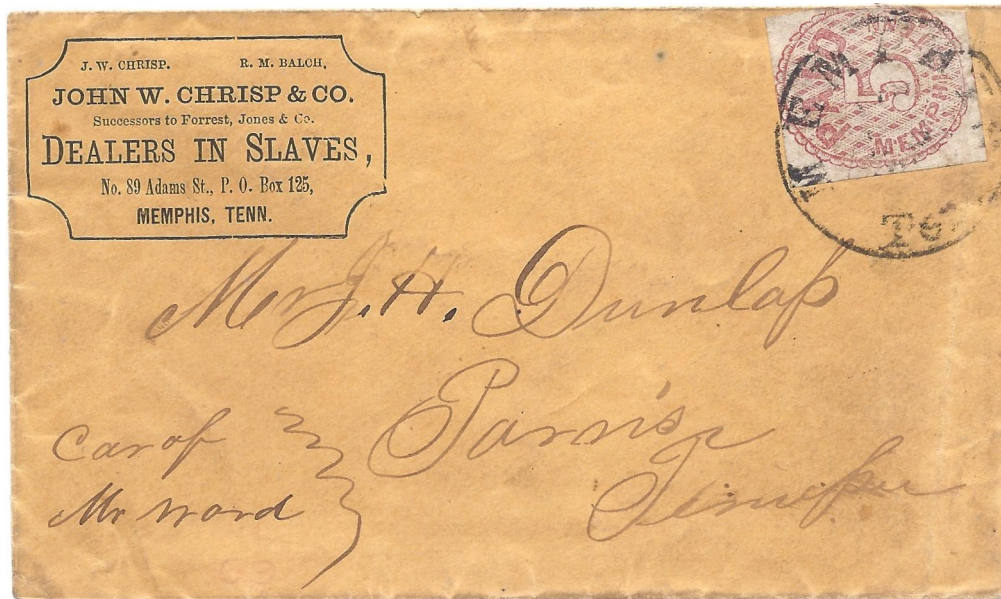 J. W. CHRISP. R. M. BALCH,
JOHN W. CHRISP & CO.
Successors to Forrest, Jones & Co.
DEALERS IN SLAVES,
No. 89 Adams St., P. O. Box 125,
MEMPHIS, TENN.
PAID
5
MEMPHIS
MEMPHIS
Mr J. H. Dunlap
Parris
Car of
Mr Word